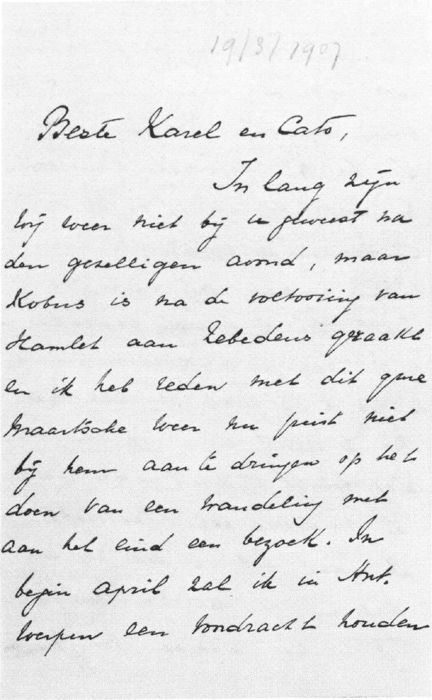 19/3/1907
Beste Karel en Cato,
In lang zijn
wij weer niet bij u geweest na
den gezelligen avond, maar
Kobus is na de voltooiing van
Hamlet aan Zebedeus geraakt
en ik heb reden met dit gure
Maartsche weer nu juist niet
bij hem aan te dringen op het
doen van een wandeling met
aan het eind een bezoek. In
begin april zal ik in Ant-
werpen een voordracht houden